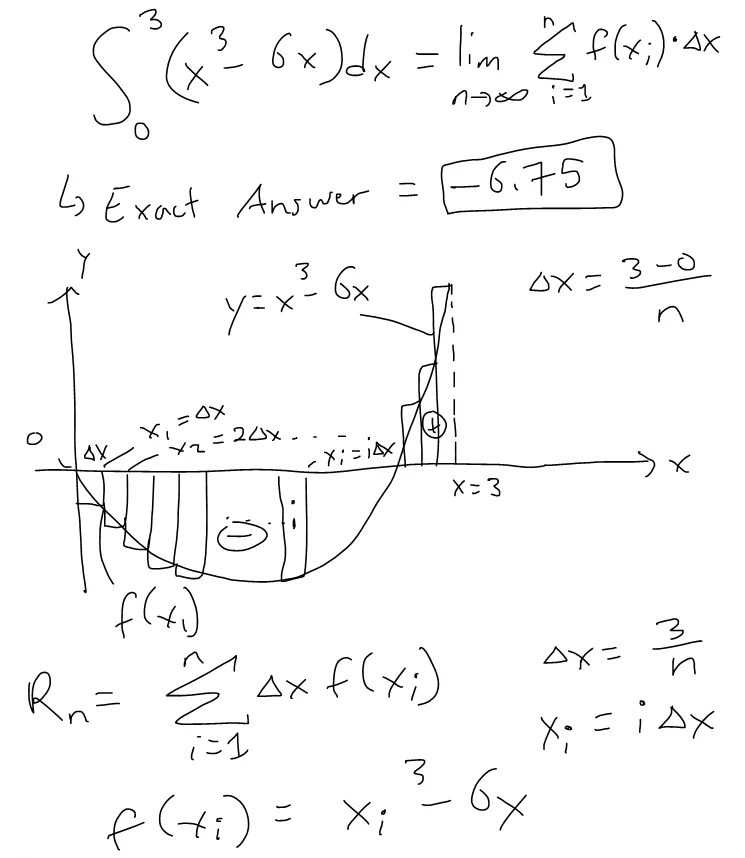 ∫₀³ (x³ - 6x)dx = lim n→∞ Σ i=1 n f(xᵢ)·Δx
↳ Exact Answer = -6.75
y
y = x³ - 6x
Δx = 3-0 / n
0
Δx
x₁ = Δx
x₂ = 2Δx . . . . .
, xᵢ = iΔx
+
x
x = 3
- . . . i
f(x₁)
Rₙ = Σ i=1 n Δx f(xᵢ)
Δx = 3/n
xᵢ = i Δx
f(xᵢ) = xᵢ³ - 6x